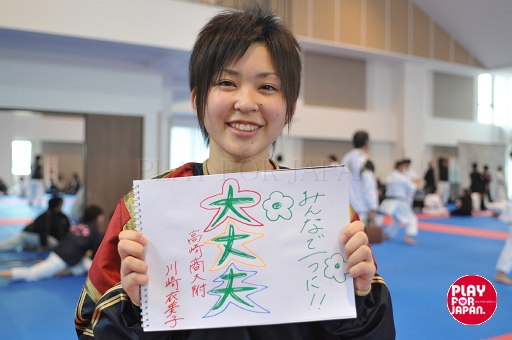 みんなで一つに!!
大丈夫
高崎商大附
川崎衣美子
PLAY FOR JAPAN
PLAY
FOR
JAPAN.